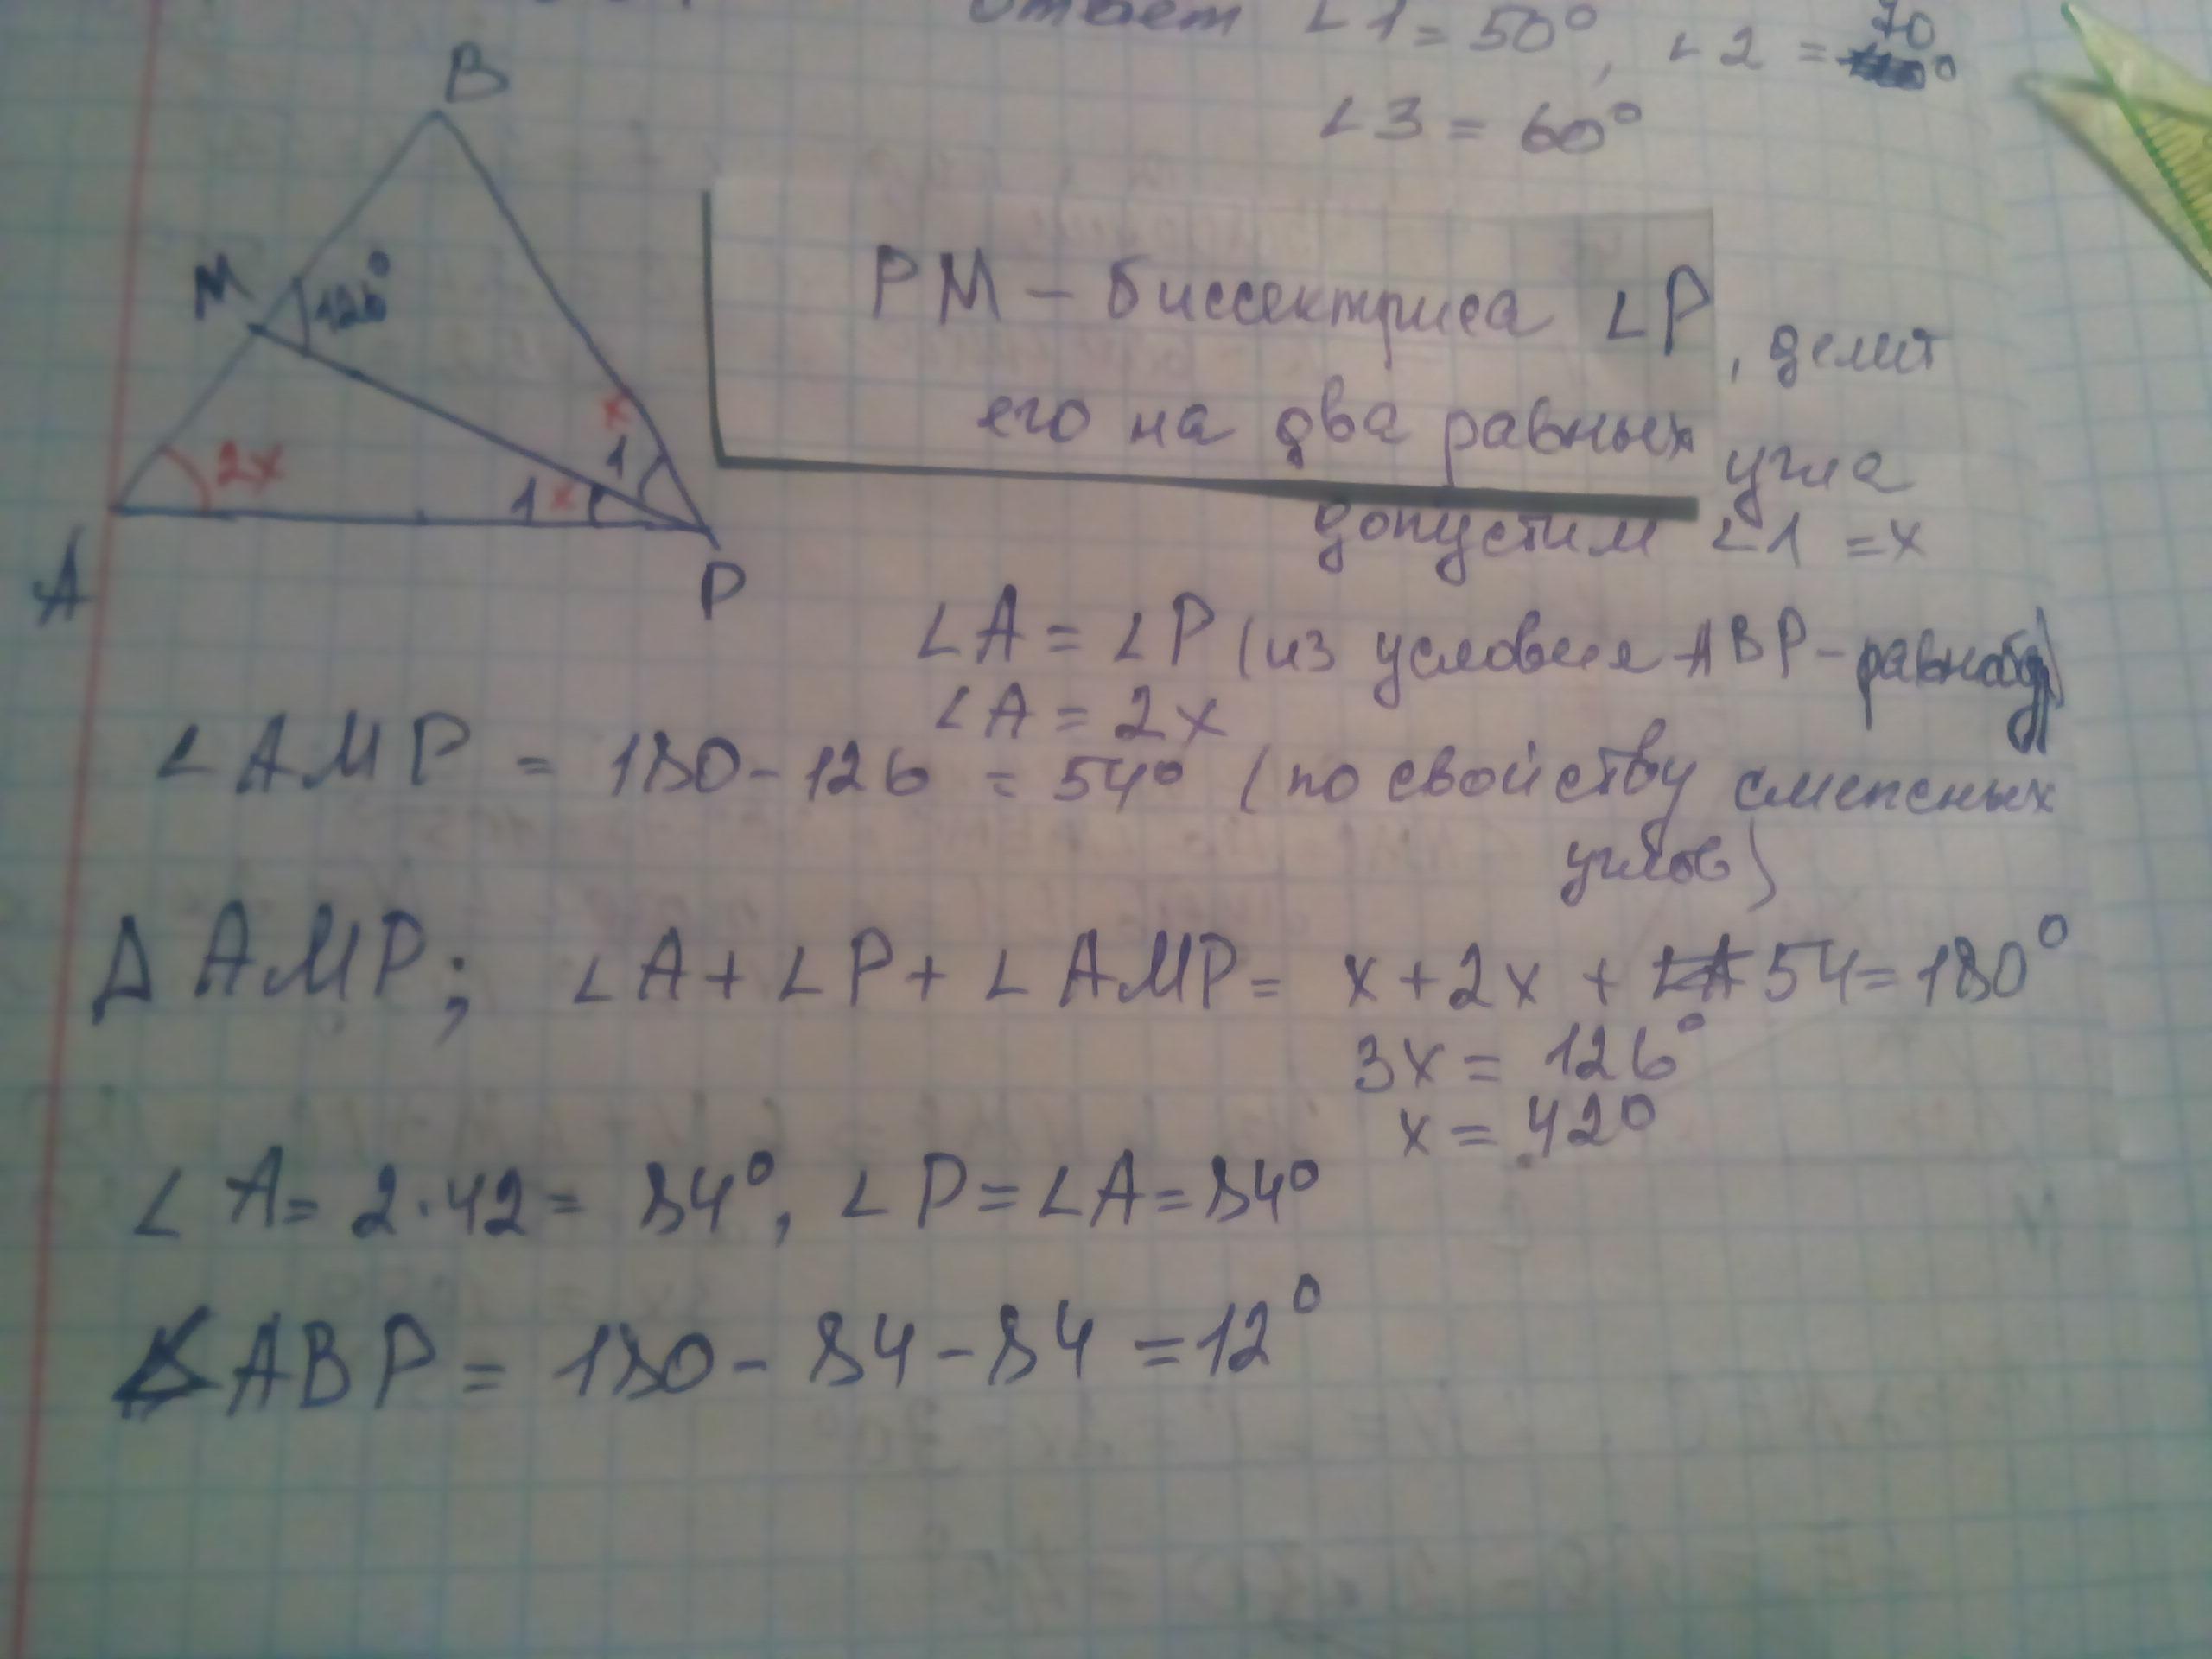 Ответ ∠1 = 50°, ∠2 = 70°
∠3 = 60°
B
M
126°
x
1
2x
1 x
A
P
PM – биссектриса ∠P, делит
его на два равных угла
допустим ∠1 = x
∠A = ∠P (из условия ABP – равнобед)
∠A = 2x
∠AMP = 180 - 126 = 54° (по свойству смежных
углов)
Δ AMP; ∠A + ∠P + ∠AMP = x + 2x + 54 = 180°
3x = 126°
x = 42°
∠A = 2·42 = 84°, ∠P = ∠A = 84°
∠ABP = 180 - 84 - 84 = 12°